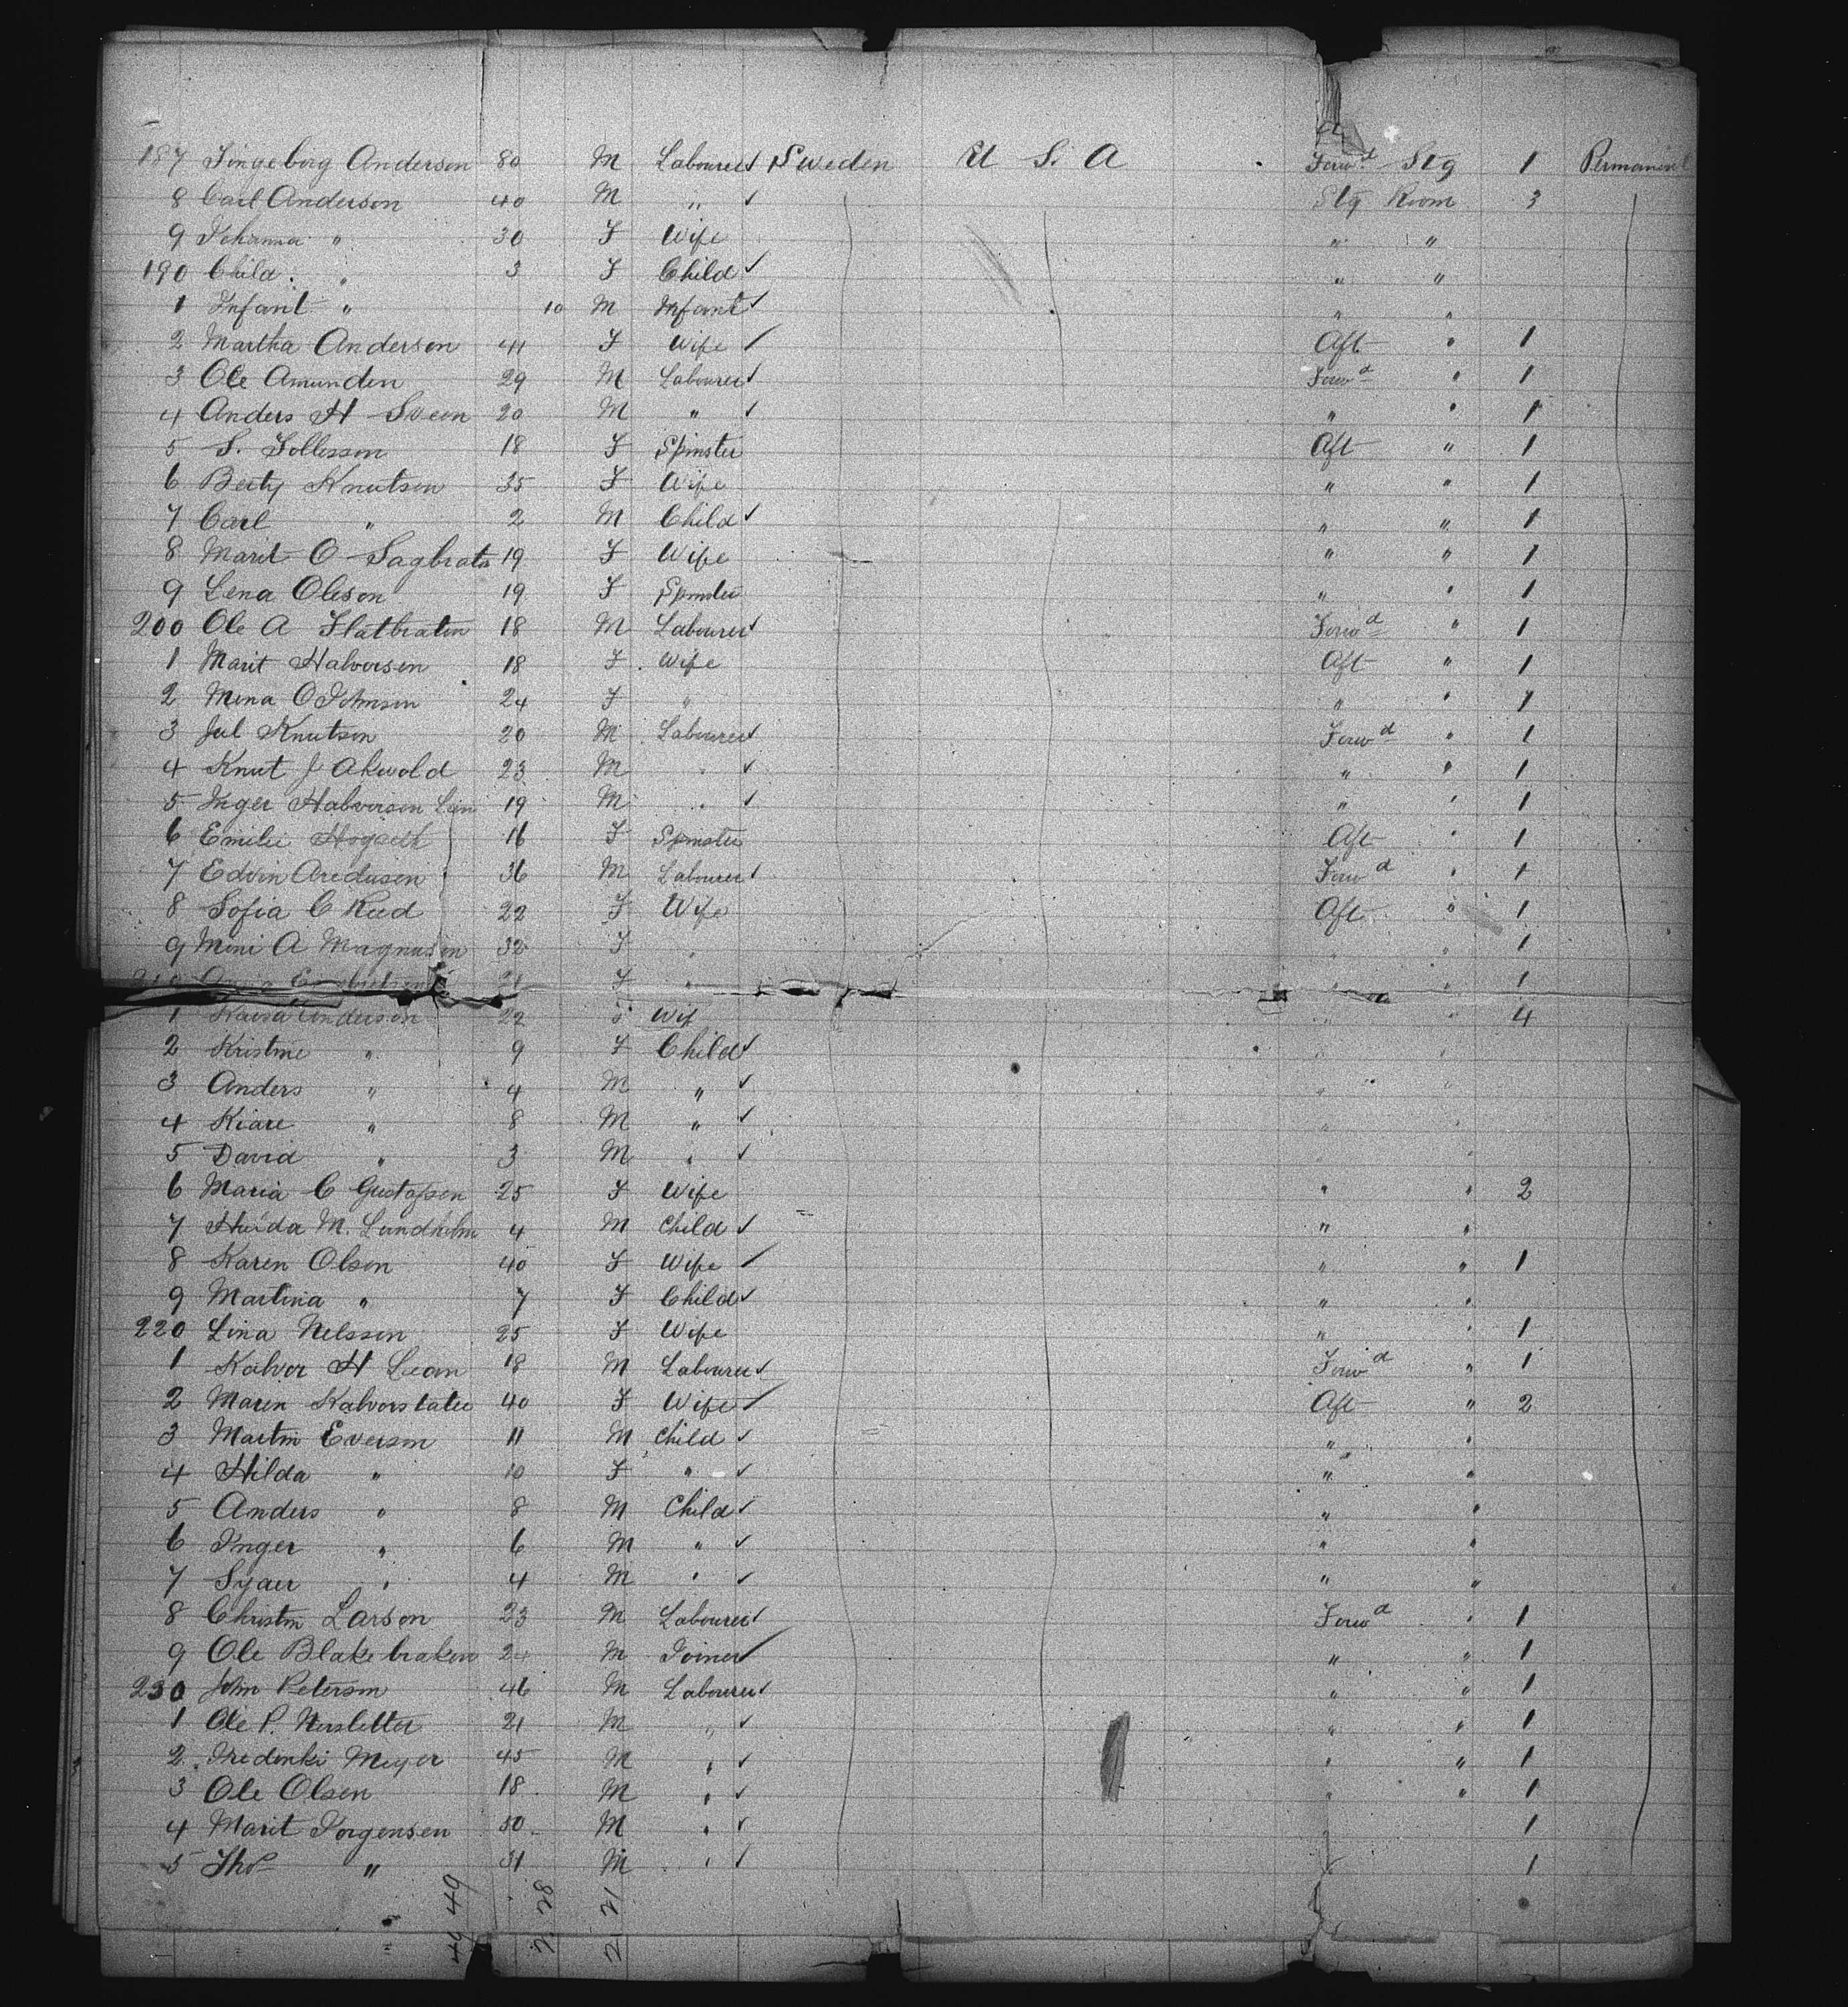 187 Singeborg Anderson 80 M Labourer ✓ Sweden U S. A Forwd Stg 1 Permanent
8 Carl Anderson 40 M " ✓ Stg Room 3
9 Johanna " 30 F Wife " "
190 Child " 3 F Child ✓ " "
1 Infant " 10 M Infant ✓ " "
2 Martha Anderson 41 F Wife ✓ Aft " 1
3 Ole Amunden 29 M Labourer ✓ Forwd " 1
4 Anders H Sveen 20 M " ✓ " " 1
5 S. Tollesson 18 F Spinster Aft " 1
6 Berty Knutson 35 F Wife " " 1
7 Carl " 2 M Child ✓ " " 1
8 Marit O 19 F Wife " " 1
9 Lena Oleson 19 F Spinster " " 1
200 Ole A Flatbraten 18 M Labourer ✓ Forwd " 1
1 Marit Halvorsen 18 F Wife Aft " 1
2 Mena O Johnson 24 F " " " 1
3 Jul Knutson 20 M Labourer ✓ Forwd " 1
4 Knut J Akwold 23 M " ✓ " " 1
5 Inger Halvorsen 19 M " ✓ " " 1
6 Emilie 16 F Spinster Aft " 1
7 Edvin Aredusen 36 M Labourer ✓ Forwd " 1
8 Sofia C Reed 22 F Wife Aft " 1
9 Mini A Magnuson 32 F " " " 1
210 21 F " " " 1
1 Anderson 22 Wif " " 4
2 Kristine " 9 F Child ✓ " "
3 Anders " 4 M " ✓ " "
4 Kiare " 8 M " ✓ " "
5 David " 3 M " ✓ " "
6 Maria C Gustafson 25 F Wife " " 2
7 M. Lundholm 4 M Child ✓ " "
8 Karen Olson 40 F Wife ✓ " " 1
9 Martina " 7 F Child ✓ " "
220 Lina Nelsson 25 F Wife " " 1
1 Kalvor H Lean 18 M Labourer ✓ Forwd " 1
2 Maren 40 F Wife ✓ Aft " 2
3 Martin Everson 11 M Child ✓ " "
4 Hilda " 10 F " ✓ " "
5 Anders " 8 M Child ✓ " "
6 Inger " 6 M " ✓ " "
7 Syaer " 4 M " ✓ " "
8 Christin Larson 23 M Labourer ✓ Forwd " 1
9 Ole Blakebraken 24 M Joiner ✓ " " 1
230 John Peterson 46 M Labourer ✓ " " 1
1 Ole P. 21 M " ✓ " " 1
2 Meyer 45 M " ✓ " " 1
3 Ole Olsen 18 M " ✓ " " 1
4 Marit Jorgensen 50 M " ✓ 1
5 Thos " 31 M " ✓ 1
49 28 21
49 21